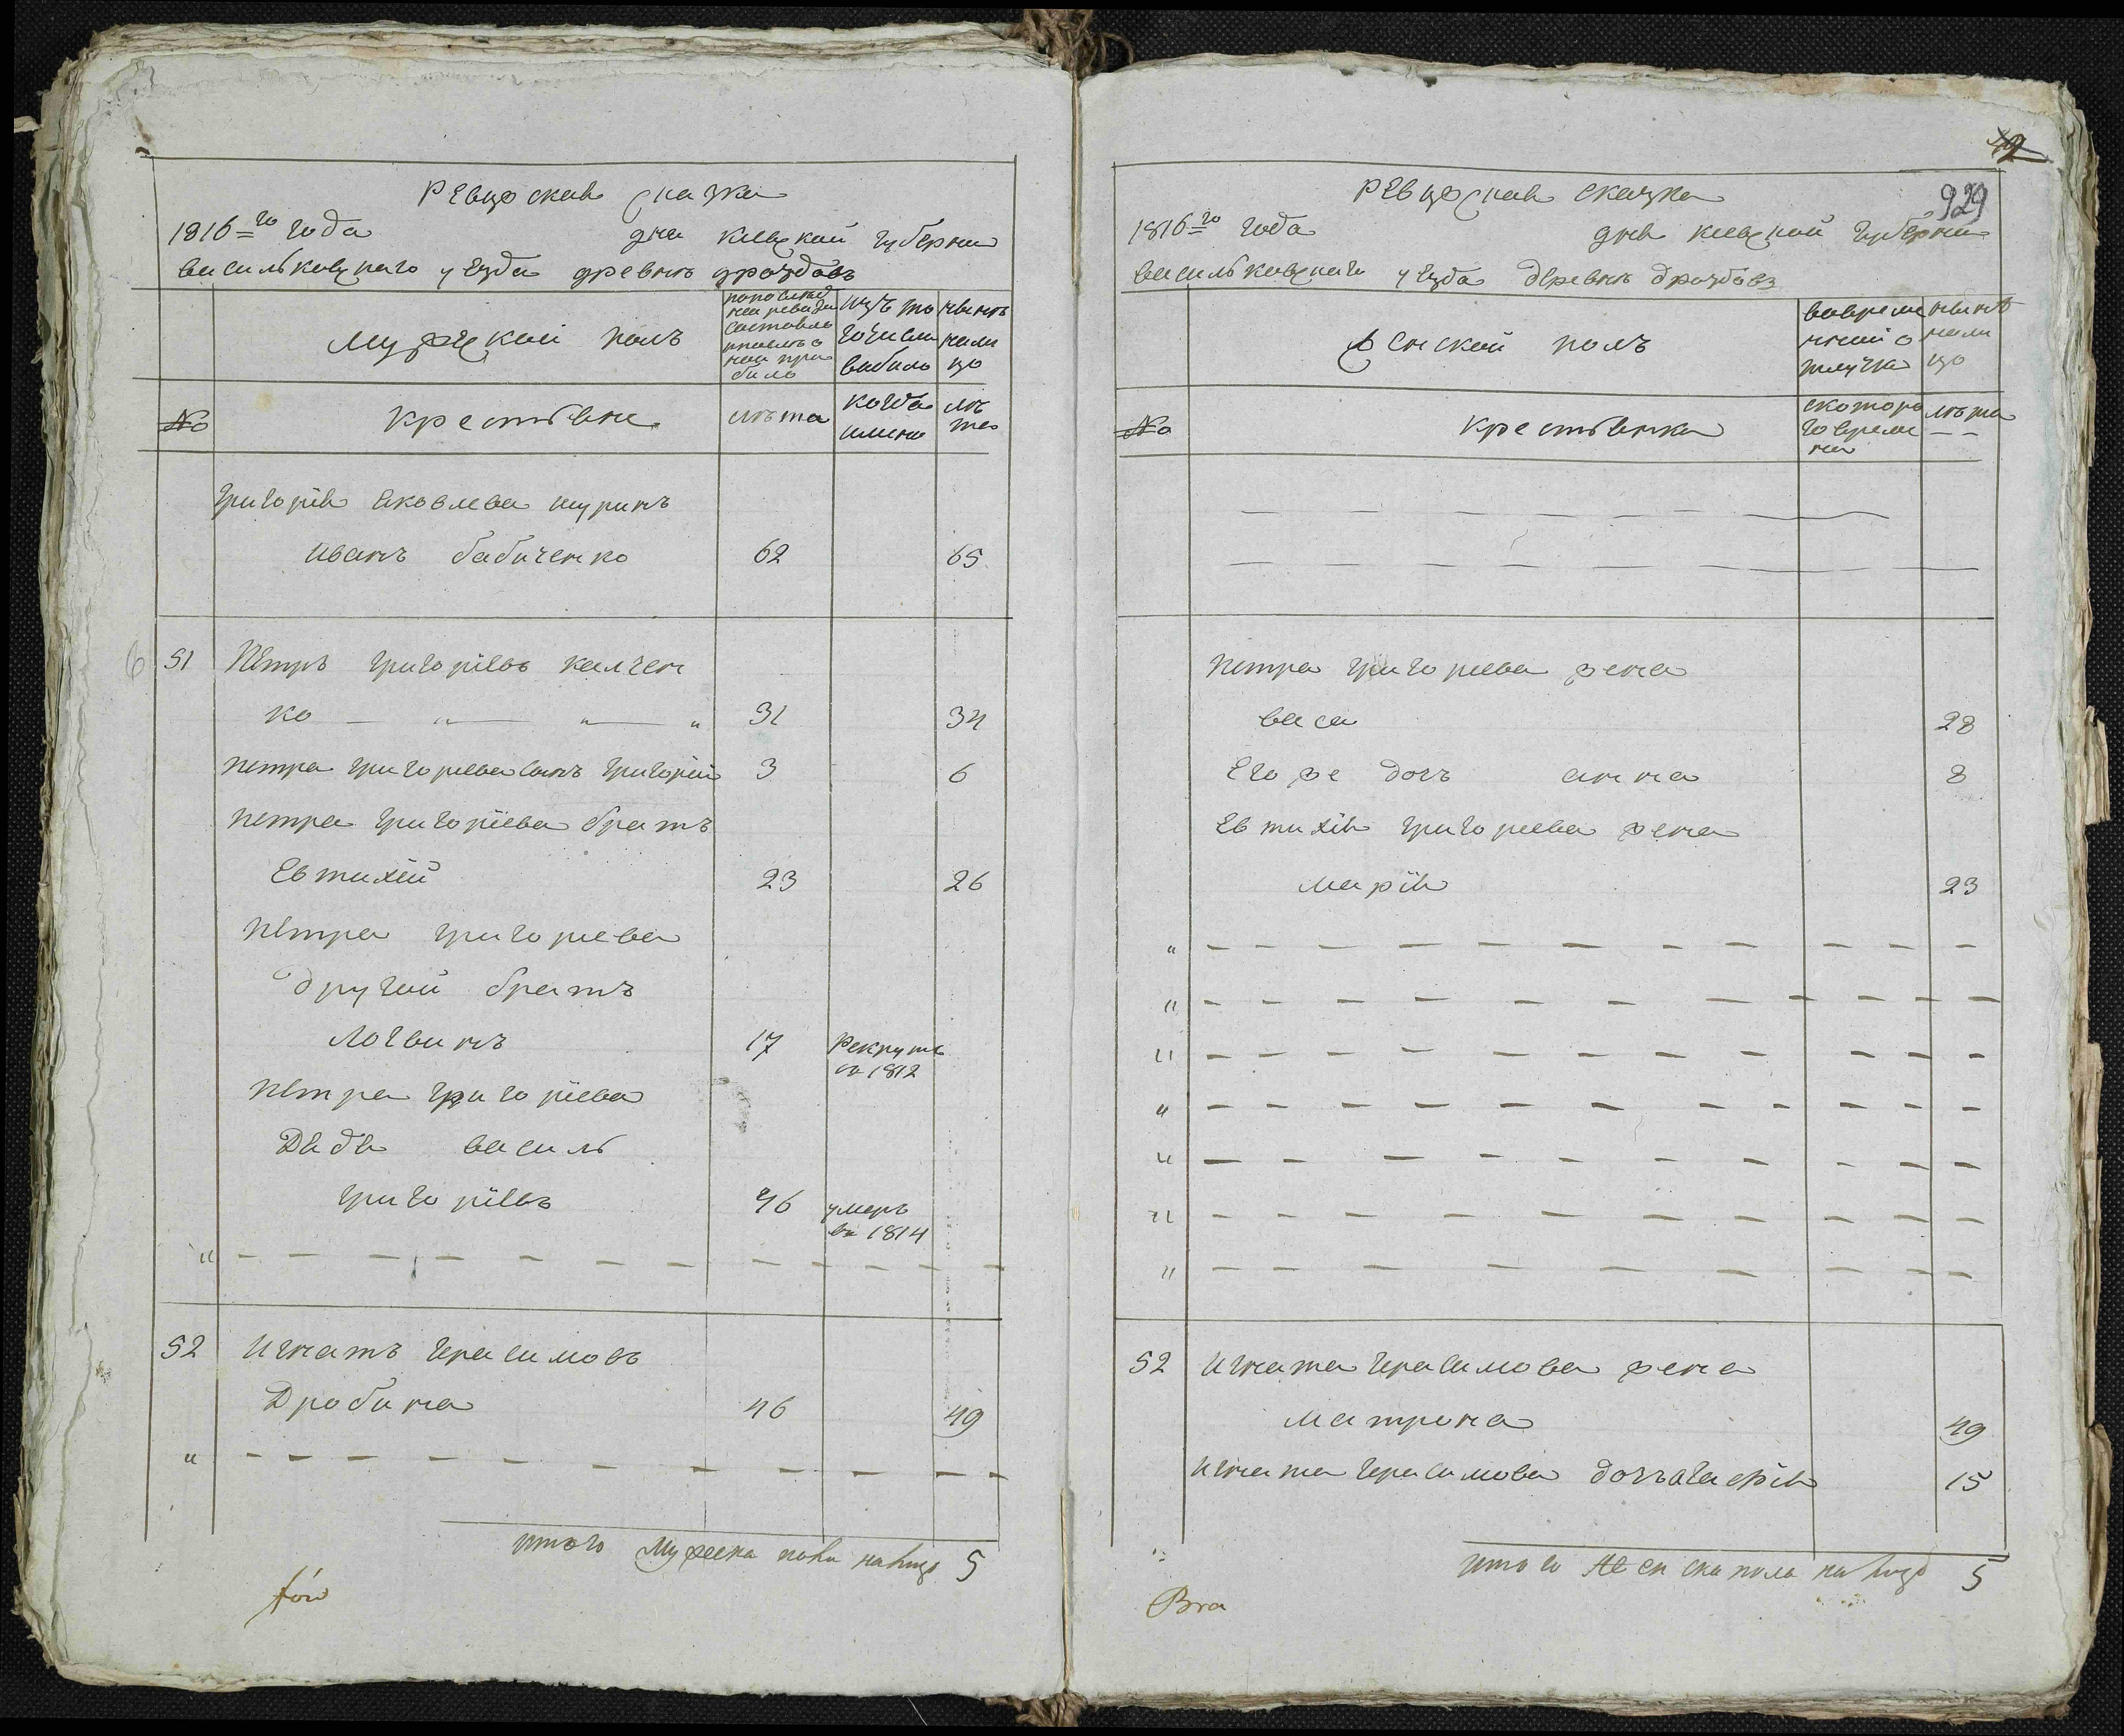 Ревизская сказка
1816=го года дня киевской губернии
васильковскаго уезда древнѣ дроздовъ
мужеской полъ
попослѣд
ней ревизи
состояло
ипослѣ о
ной при
было
изъ то
гочисла
выбыло
нынѣ
нали
цо
№
крестьяне
лѣта
когда
имено
лѣ
та
григорія яковлева шуринъ
иванъ бабиченко 62 65
6 51 Петръ григоріевъ калчен
ко — " — " — " 31 34
петра григориева сынъ григорий 3 6
петра григоріева братъ
Евтихій 23 26
петра григориева
другой братъ
Логвинъ 17 Рекрутъ
въ 1812
петра григоріева
Дядя василь
григоріевъ 46 умеръ
въ 1814
" — — — — — — — — — — — —
52 игнатъ герасимовъ
Дробина 46 49
" — — — — — — — — — — —
итого мужеска пола налицо 5
42
929
Ревизская сказка
1816=го года дня киевской губернии
васильковскаго уезда деревнѣ дроздовъ
женской полъ
вовреме
нной о
тлучке
нынѣ
нали
цо
№
крестьянка
скотора
го време
ни
лѣта
— —
— — — — — — — —
— — — — — — — —
петра григориева жена
васа 28
Его же дочъ анна 8
Евтихія григориева жена
марія 23
" — — — — — — — — — — —
" — — — — — — — — — — —
" — — — — — — — — — — —
" — — — — — — — — — — —
" — — — — — — — — — — —
" — — — — — — — — — — —
" — — — — — — — — — — —
52 игната герасимова жена
матрона 49
игната герасимова дочъ агафія 15
итого женска пола налицо 5
Bra